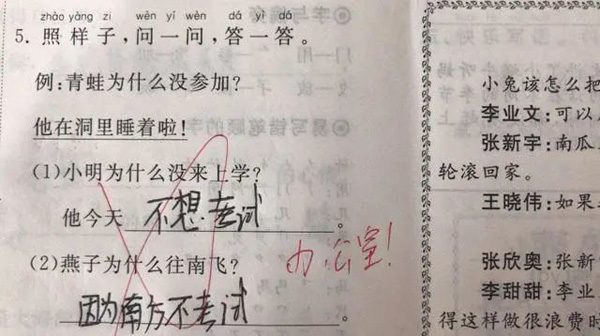 zhào yàng zi wèn yí wèn dá yì dá
5. 照样子,问一问,答一答。
例:青蛙为什么没参加?
他在洞里睡着啦!
(1)小明为什么没来上学?
他今天不想考试。
(2)燕子为什么往南飞?
因为南方不考试
办公室!
小兔该怎么把
李业文:可以
张新宇:南瓜
轮滚回家。
王晓伟:如果
张欣奥:张新
李甜甜:李业
得这样做很浪费时